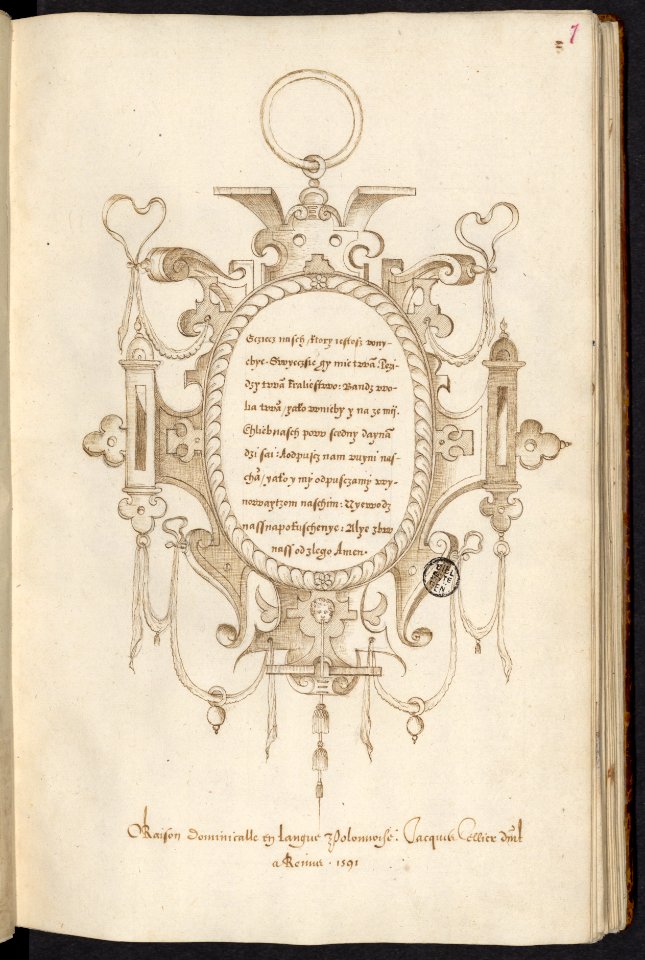 7
Ocziecz nasch / ktory iestosz wony-
chye. Swyeczsie gy mie twã. Pzi-
dzy twã kraliestwo: Bandz wo-
lia twã / yako wnieby y na ze mÿ.
Chlieb nasch pow scedny daynã
dzi sai: Aodpuscz nam wuyni nas-
chã / yako y mÿ odpusczamÿ wy-
nowaytzom naschim: Nyewodz
nass napokuschenye: Alye zbw
nass od zlego Amen.
ORaison Dominicalle en Langue Polonnoise. Jacques Cellier dml
a Reims . 1591